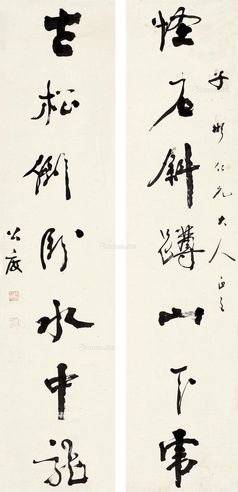 子彬仁兄大人正之
怪石斜蹲山下虎
古松倒臥水中龍
公度